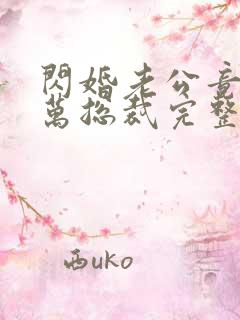 閃婚老公竟
萬總裁完整
西uko